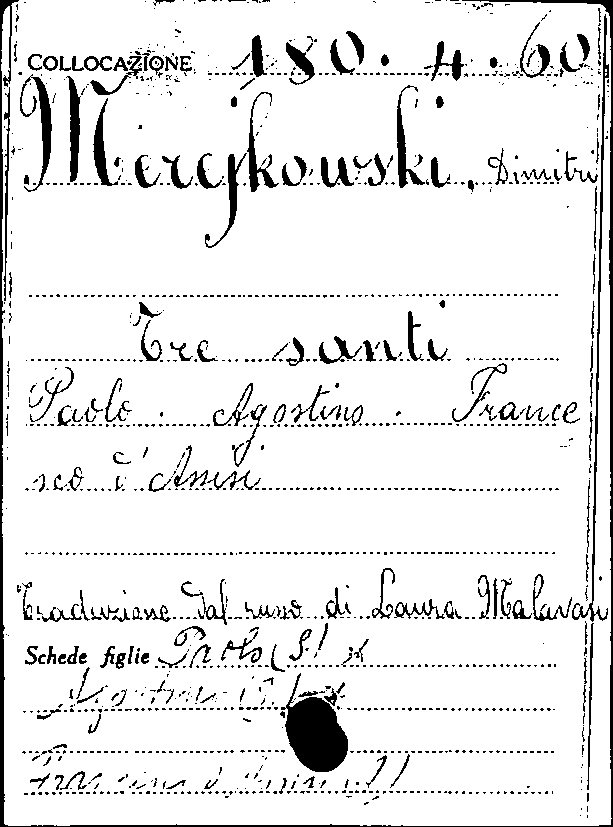 COLLOCAZIONE 180.4.60
Merejkowski, Dimitri
Tre santi
Paolo. Agostino. France
sco d'Assisi
Traduzione dal russo di Laura Malavasi
Schede figlie Paolo (S)
Agostino (S)
Francesco d'Assisi (S)